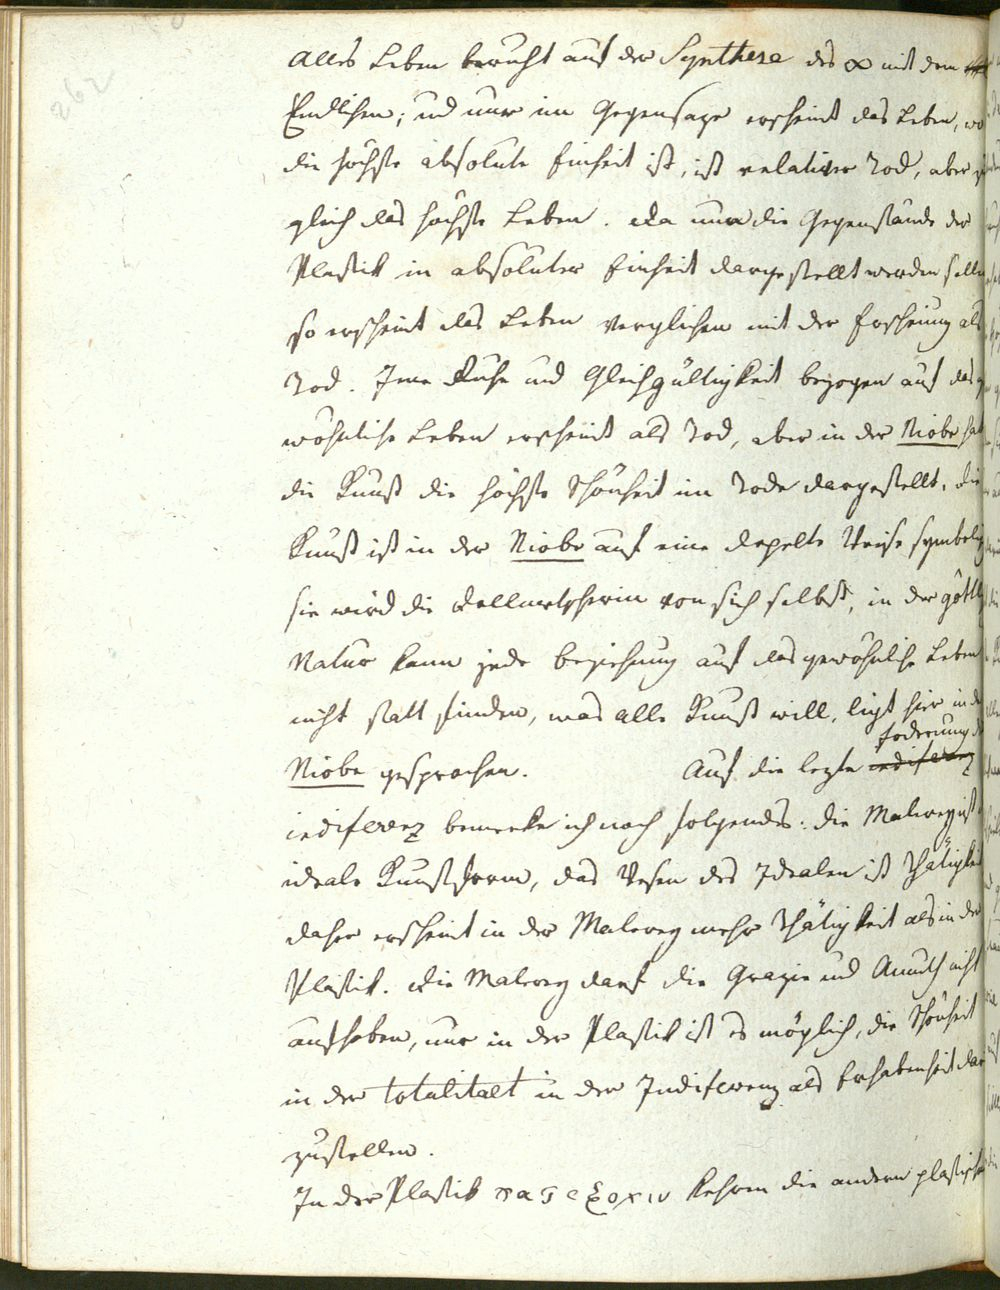 262
Alles Leben beruht auf der Synthese des ∞ mit dem
Endlichen; und nur im Gegensaze erscheint das Leben, wo
die höchste absolute Einheit ist, ist relativer Tod, aber zu
gleich das höchste Leben. Da nun die Gegenstände der
Plastik in absoluter Einheit dargestellt werden solle
so erscheint das Leben verglichen mit der Erscheinung als
Tod. Jene Ruhe und Gleichgültigkeit bezogen auf das ge
wöhnliche Leben erscheint als Tod, aber in der Niobe hat
die Kunst die höchste Schönheit im Tode dargestellt, die
Kunst ist in der Niobe auf eine dopelte Weise symbolisch
sie wird die Dollmetscherin von sich selbst, in der göttl
Natur kann jede beziehung auf das gewöhnliche Leben
nicht statt finden, was alle Kunst will, ligt hier in der
Niobe gesprochen. Auf die lezte indiferenz foderung der
indiferenz bemerke ich noch folgendes: die Malerey ist
ideale Kunstform, das Wesen des Idealen ist Thätigkeit
daher erscheint in der Malerey mehr Thätigkeit als in der
Plastik. Die Malerey darf die Grazie und Anmuth nicht
aufheben, nur in der Plastik ist es möglich, die Schönheit
in der totalitaet in der Indiferenz als Erhabenheit dar
zustellen.
In der Plastik κατ εξοχιν kehren die andern plastischen